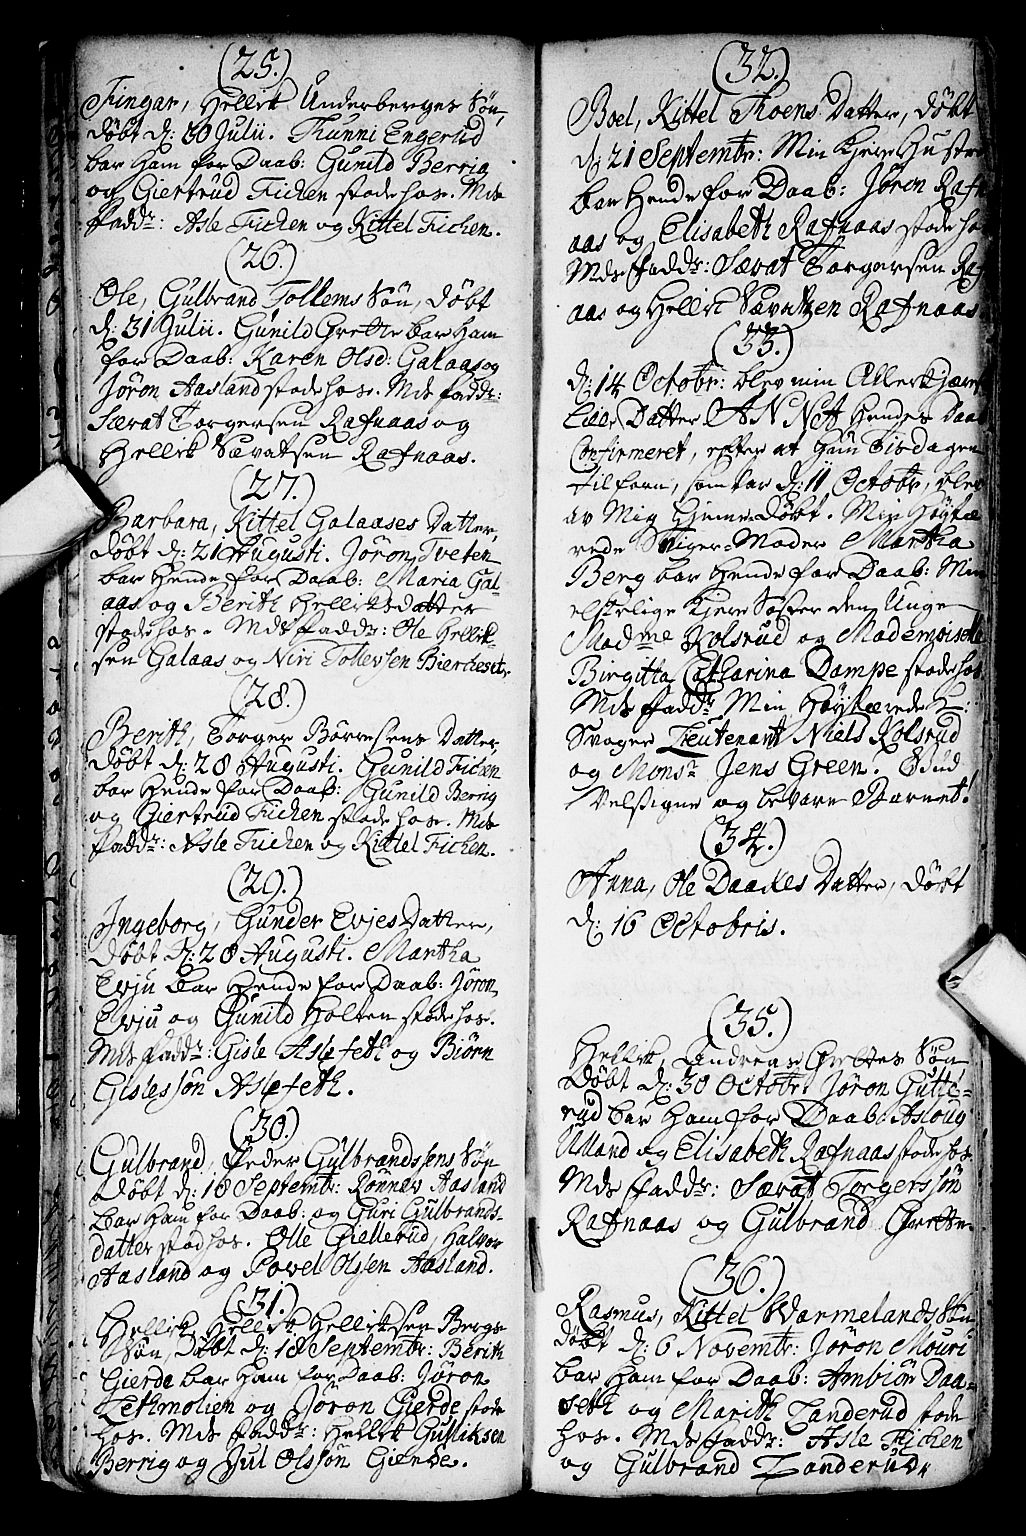 (25.)
Fingar, Hellik Underberges Søn,
døbt d: 30 Julii. Thunni Engerud
bar ham for Daab: Gunild Berrig
og Giertrud Fichen stode hos. Mds
Fadd:r: Asle Fichen og Kittel Fichen.
(26.)
Ole, Gulbrand Tollems Søn, døbt
d: 31 Julii. Gunild Grette bar ham
for Daab: Karen Olsd: Galaas og
Jøron Aasland stode hos. Mds fadd:r:
Sævat Torgersen Rafnaas og
Hellik Sævatsen Rafnaas.
(27.)
Barbara, Kittel Galaases Datter,
døbt d: 21 Augusti. Jøron Tveten
bar hende for Daab: Maria Gal-
aas og Berith Helliksdatter
stode hos. Mds Fadd:r: Ole Hellik-
sen Galaas og Niri Tollevsen Bierkeset.
(28.)
Berith, Torger Børresens Datter
døbt d: 28 Augusti. Gunild Fichen
bar hende for Daab: Gunild Berrig
og Giertrud Fichen stode hos. Mds
Fadd:r: Asle Fichen og Kittel Fichen.
(29.)
Ingeborg, Gunder Evjes Datter,
døbt d: 28 Augusti. Martha
Evju bar hende for Daab: Jøron
Evju og Gunild Holten stode hos.
Mds Fadd:r: Gisle Aslefeth og Biørn
Gislessøn Aslefeth.
(30.)
Gulbrand, Peder Gulbrandsens Søn
døbt d: 18 Septembr: Rønnev Aasland
bar ham for Daab: og Guri Gulbrands-
datter stod hos. Olle Giellerud, Halvor
Aasland og Povel Olssen Aasland.
(31.)
Hellik, Hellik Helliksen Bergs
Søn, døbt d: 18 Septembr: Berith
Gierde bar ham for Daab: Jøron
Lethmolien og Jøron Gierde stode
hos. Mds Fadd:r: Hellik Gulliksen
Berrig og Jul Olssøn Gierde.
(32.)
Boel, Kittel Thoens Datter, døbt
d: 21 Septembr: Min kjere Hustro
bar hende for Daab: Jøron Rafn-
aas og Elisabeth Rafnaas stode hos
Mds Fadd:r: Sævat Torgersen Rafn-
aas og Hellik Sævatsen Rafnaas.
(33.)
d: 14 Octobr: blev min Allerkjæreste
Datter ANNA hendes Daab
Confirmeret, efter at hun Tisdagen
tilforn, som var d: 11 Octobr, blev
av Mig hjemme døbt. Min Høytæ
rede Sviger-Moder Martha
Berg bar hende for Daab: Min
elskelige kjere Søster den Unge
Madme Kolsrud og Mademoiselle
Birgitta Catharina Dampe stode hos
Mds Fadd:r Min Høystærede Hr:
Svoger Lieutenant Niels Kolsrud
og Monsr Jens Green. Gud
Velsigne og bevare Barnet!
(34.)
Anna, Ole Daakes Datter, døbt
d: 16 Octobris.
(35.)
Hellik, Andreas Grettes Søn
døbt d: 30 Octobr: Jøron Gutte-
rud bar ham for Daab: Asloug
Ulland og Elisabeth Rafnaas stode hos
Mds Fadd:r: Sævat Torgerssøn
Rafnaas og Gulbrand Grette.
(36.)
Rasmus, Kittel Wærmelands Søn
døbt d: 6 Novembr: Jøron Mouri
bar ham for Daab: Ambiør Daa-
seth og Marith Landerud stode
hos. Mds Fadd:r: Asle Fichen
og Gulbrand Landerud.